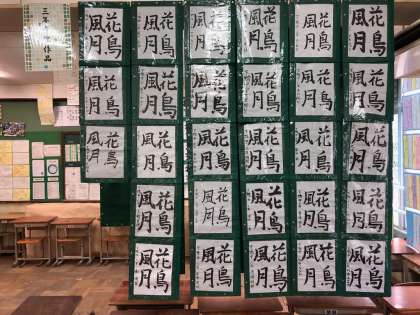 三年
作品
花鳥
風月
花鳥
風月
花鳥
風月
花鳥
風月
花鳥
風月
花鳥
風月
花鳥
風月
花鳥
風月
花鳥
風月
花鳥
風月
花鳥
風月
花鳥
風月
花鳥
風月
花鳥
風月
花鳥
風月
花鳥
風月
花鳥
風月
花鳥
風月
花鳥
風月
花鳥
風月
花鳥
風月
花鳥
風月
花鳥
風月
花鳥
風月
花鳥
風月
花鳥
風月
花鳥
風月
花鳥
風月